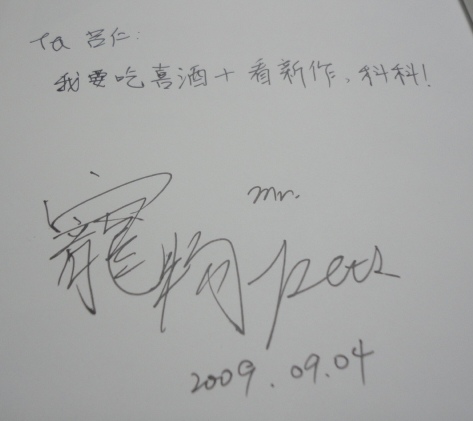 To 呂仁:
我要吃喜酒+看新作,科科!
mr.
寵物 pets
2009.09.04